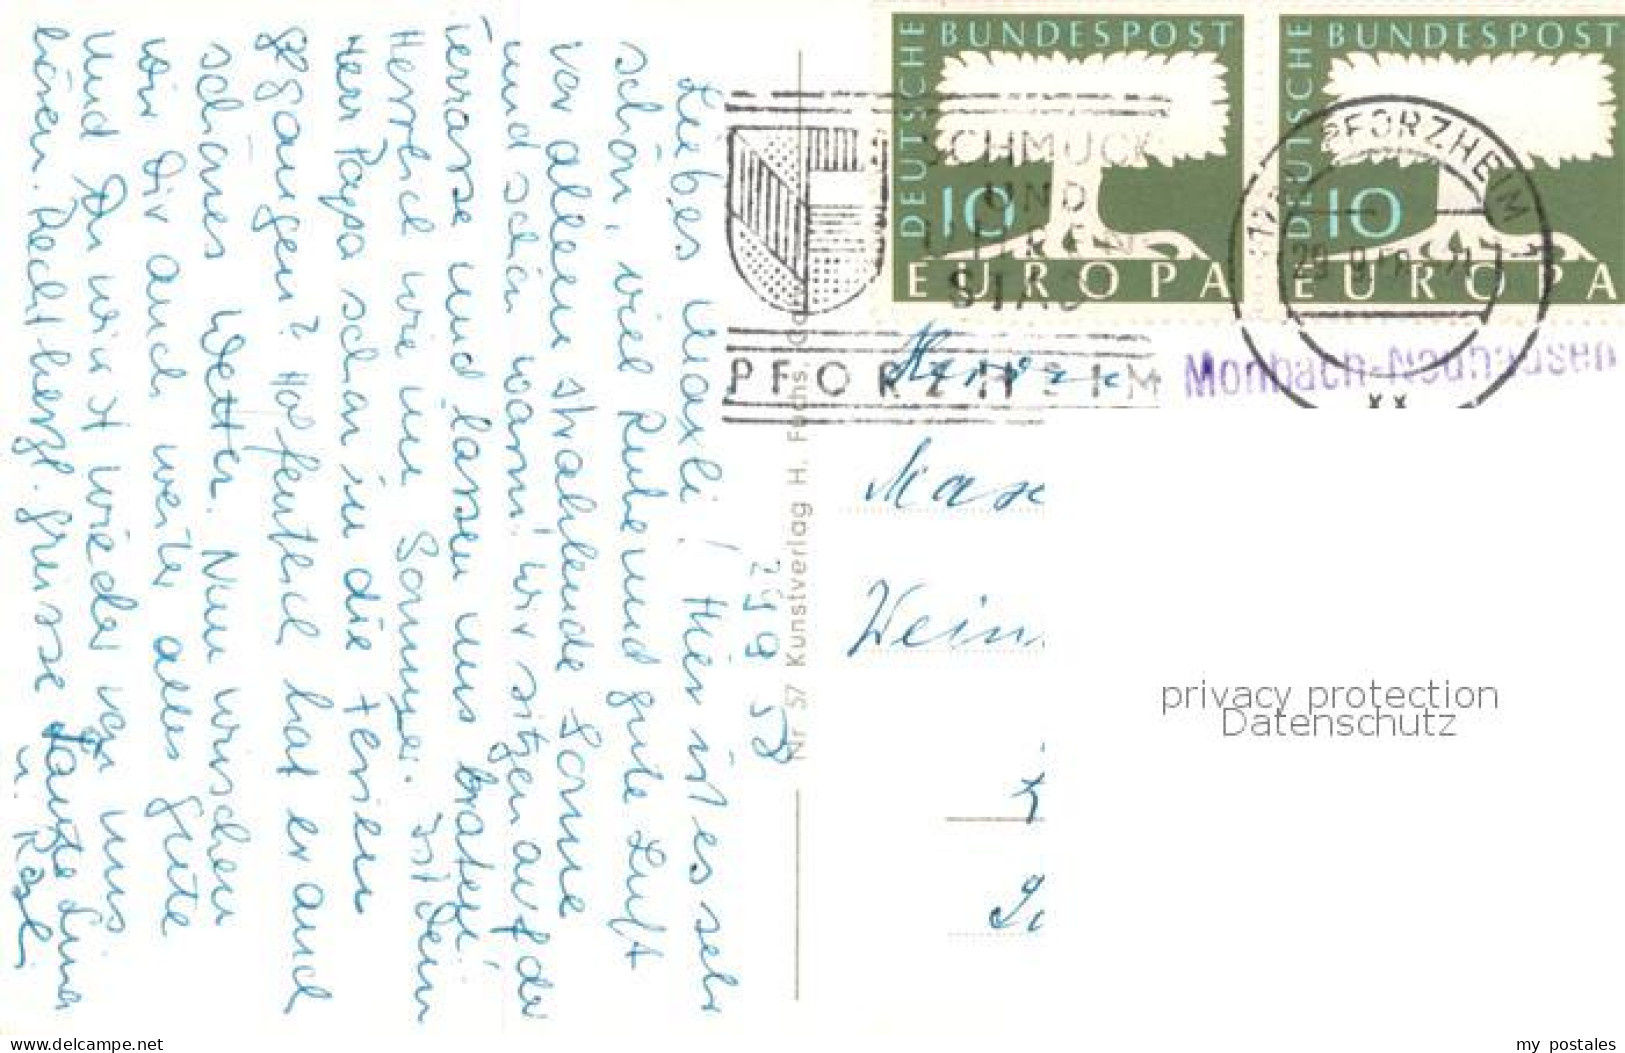 29.9.58
Liebes Maxli! Hier ist es sehr
schön, viel Ruhe und gute Luft
vor allem strahlende Sonne
und schön warm. Wir sitzen auf der
Terrasse und lassen uns braten.
Herrlich wie im Sommer. Ist Dein
Herr Papa schon in die Ferien
gegangen? Hoffentlich hat er auch
schönes Wetter. Nun wünschen
wir Dir auch weiter alles Gute
und Du wirst wieder von uns
hören. Recht herzl. Grüsse Tante Lina
u. Rösli
Nr 57 Kunstverlag H. Fuchs,
DEUTSCHE BUNDESPOST
10
EUROPA
DEUTSCHE BUNDESPOST
10
EUROPA
SCHMUCK
UND
UHREN
STADT
PFORZHEIM
PFORZHEIM
Monbach-Neuhausen
Herrn
Max
Wein
privacy protection
Datenschutz
www.delcampe.net
my postales